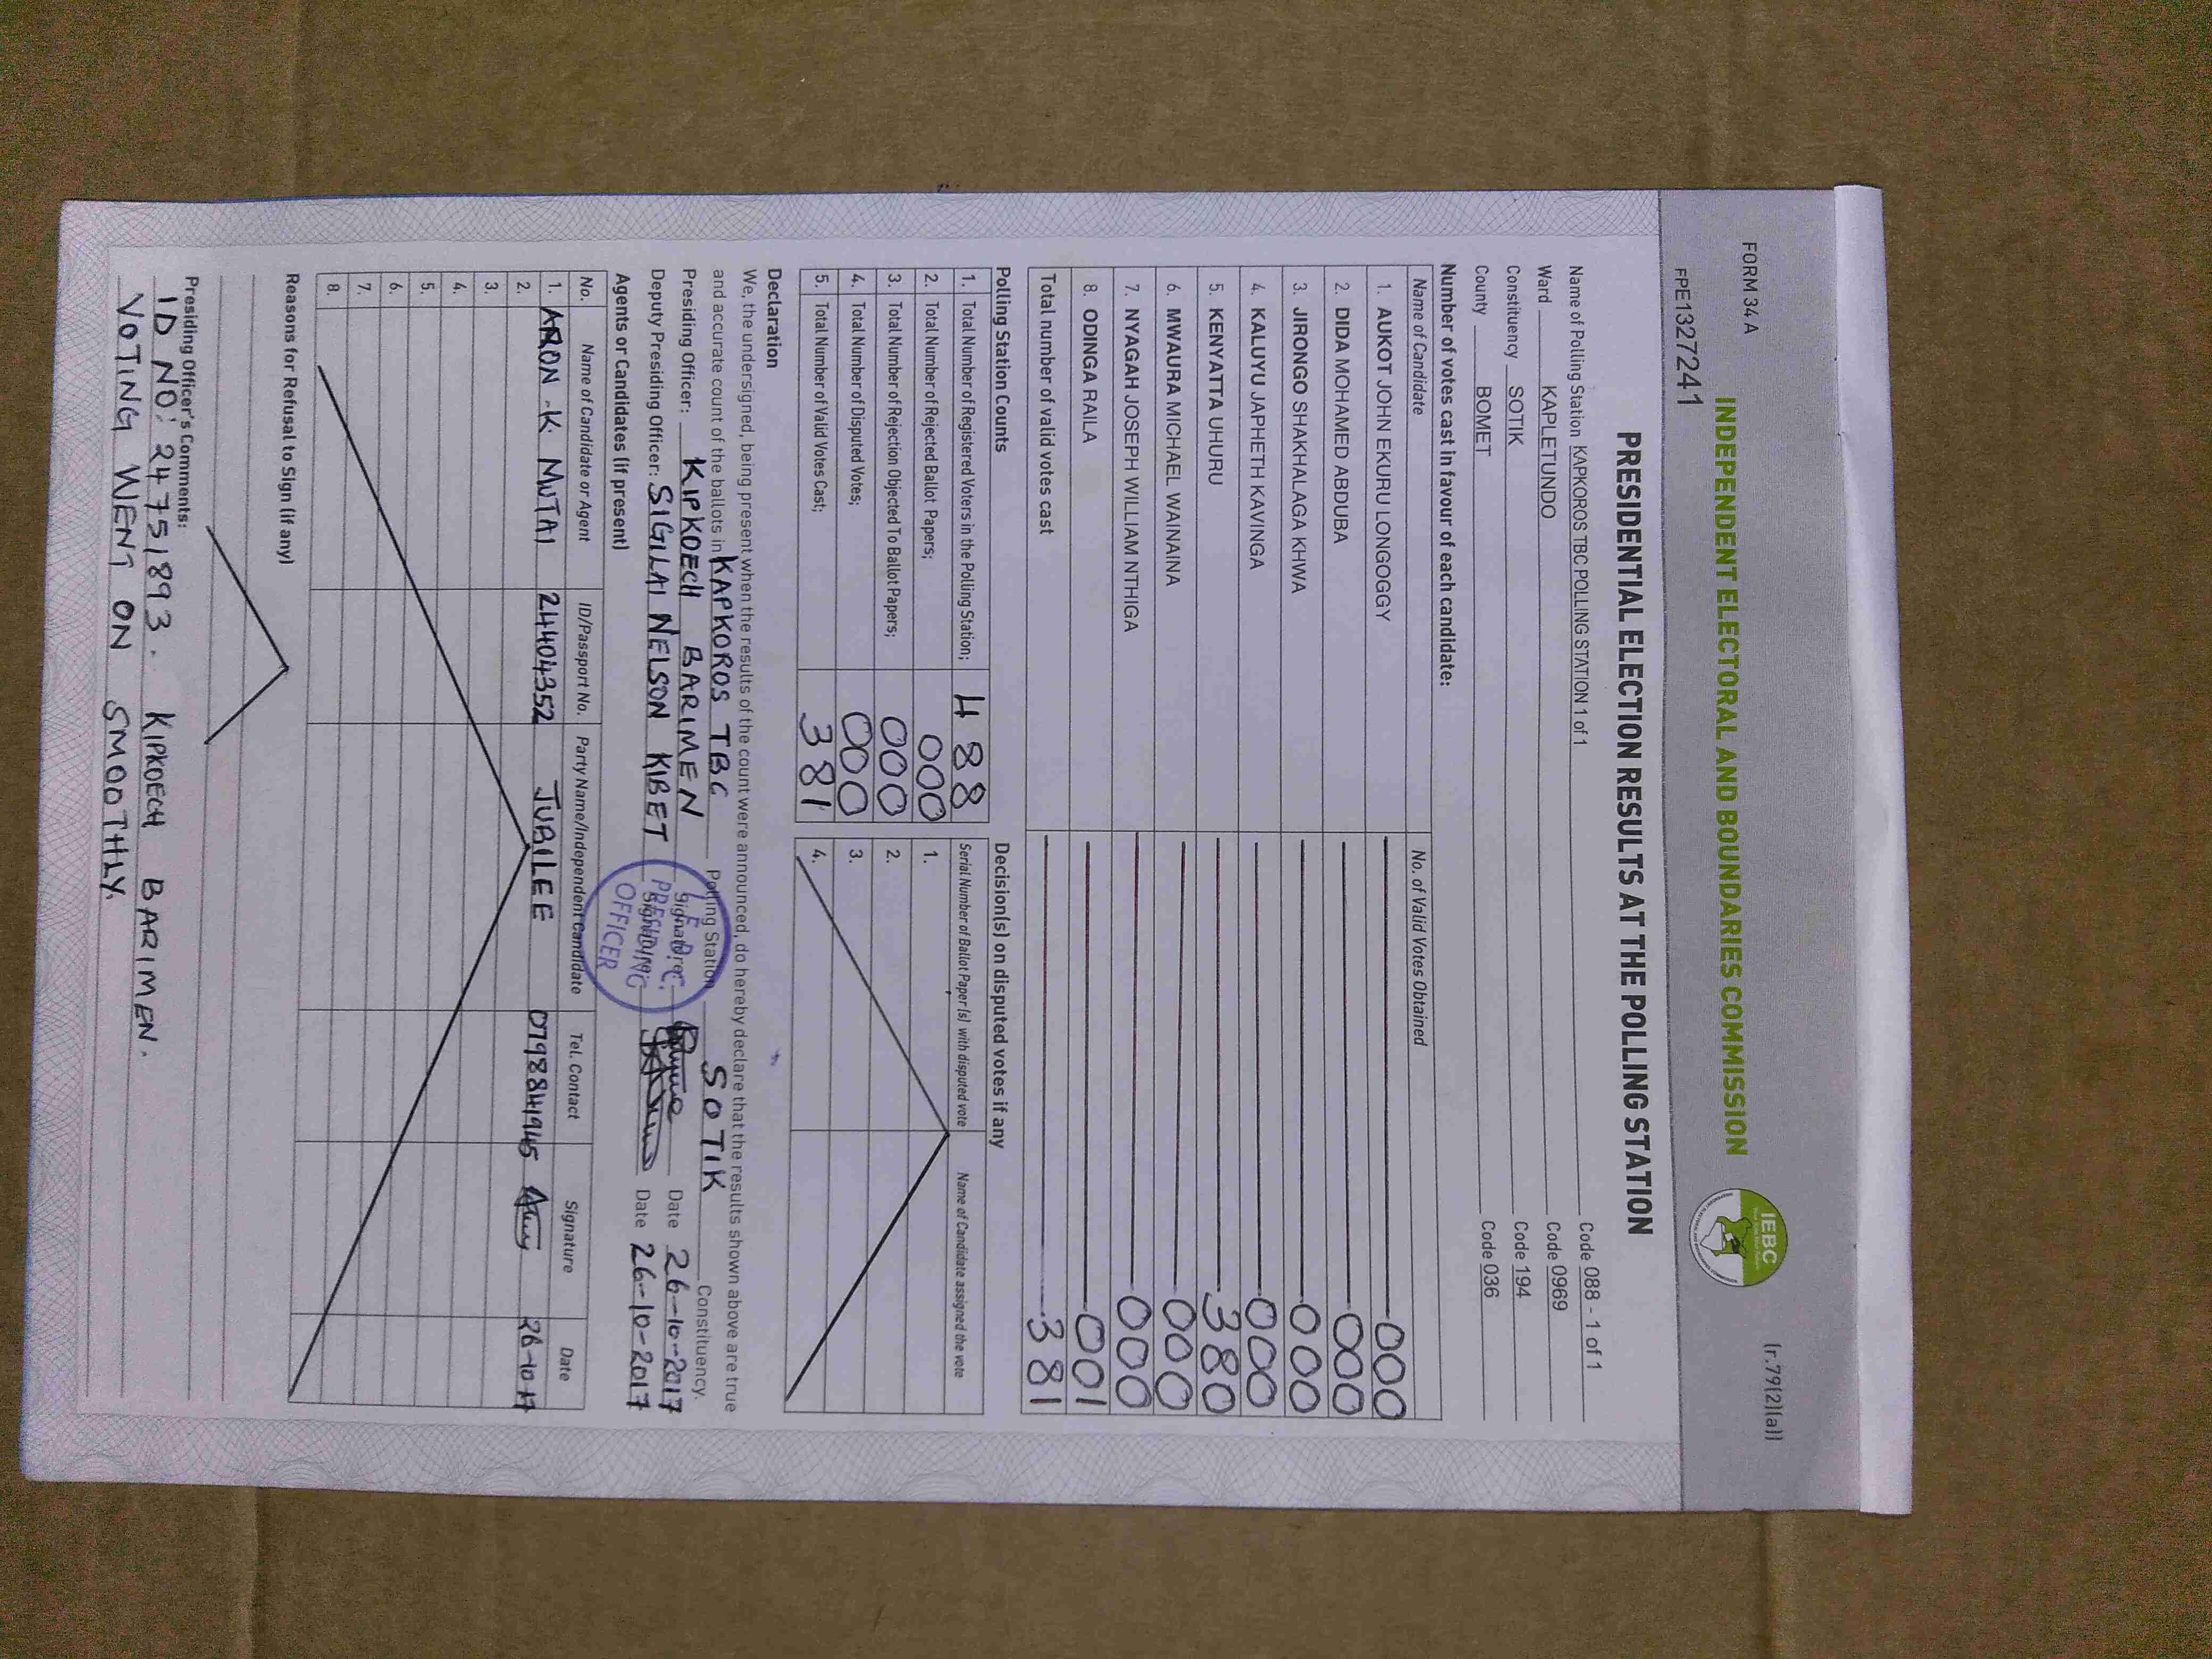 FORM 34 A
(r.79(2)(a))
INDEPENDENT ELECTORAL AND BOUNDARIES COMMISSION
IEBC
FPE1327241
PRESIDENTIAL ELECTION RESULTS AT THE POLLING STATION
Name of Polling Station KAPKOROS TBC POLLING STATION 1 of 1 Code 088 - 1 of 1
Ward KAPLETUNDO Code 0969
Constituency SOTIK Code 194
County BOMET Code 036
Number of votes cast in favour of each candidate:
Name of Candidate No. of Valid Votes Obtained
1. AUKOT JOHN EKURU LONGOGGY 000
2. DIDA MOHAMED ABDUBA 000
3. JIRONGO SHAKHALAGA KHWA 000
4. KALUYU JAPHETH KAVINGA 000
5. KENYATTA UHURU 380
6. MWAURA MICHAEL WAINAINA 000
7. NYAGAH JOSEPH WILLIAM NTHIGA 000
8. ODINGA RAILA 001
Total number of valid votes cast 381
Polling Station Counts
1. Total Number of Registered Voters in the Polling Station; 488
2.. Total Number of Rejected Ballot Papers; 000
3. Total Number of Rejection Objected To Ballot Papers; 000
4. Total Number of Disputed Votes; 000
5. Total Number of Valid Votes Cast; 381
Decision(s) on disputed votes if any
Serial Number of Ballot Paper (s) with disputed vote Name of Candidate assigned the vote
1.
2.
3.
4.
Declaration
We, the undersigned, being present when the results of the count were announced, do hereby declare that the results shown above are true
and accurate count of the ballots in KAPKOROS TBC Polling Station SOTIK Constituency.
Presiding Officer: KIPKOECH BARIMEN Signature: Date 26-10-2017
Deputy Presiding Officer: SIGILAI NELSON KIBET Signature: Date 26-10-2017
PRESIDING
OFFICER
Agents or Candidates (if present)
No. Name of Candidate or Agent ID/Passport No. Party Name/Independent Candidate Tel. Contact Signature Date
1. ARON .K. MUTAI 24404352 JUBILEE 0798841945 26-10-17
2.
3.
4.
5.
6.
7.
8.
Reasons for Refusal to Sign (if any)
Presiding Officer's Comments:
ID NO: 24751893. KIPKOECH BARIMEN.
VOTING WENT ON SMOOTHLY.